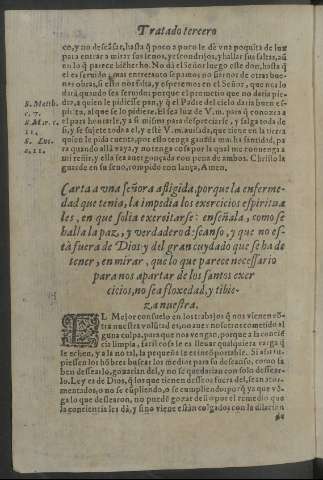 Tratado tercero
co, y no descãsar, hasta q̃ poco a poco le dê vna poquita de luz
para entrar a mirar sus senos, y rescondrijos, y hallar sus faltas, aũ
en lo q̃ parece biẽ hecho. No dâ el Señor luego este don, hasta q̃
el es seruido, mas entretanto sepamos no fiarnos de otras bue-
nas obras, si esto nos falta, y esperemos en el Señor, que nos lo
darâ, quando sea seruido: porque el prometio que no daria pie-
S. Matth. dra, a quien le pidiesse pan, y q̃ el Padre del cielo daria buen es-
c. 7. piritu, al que se lo pidiere. El sea luz de V.m. para q̃ conozca a
S. Mar. c. el para honrarle, y a si misma para despreciarse, y salga toda de
11. si, y se sujete toda a el, y esse V.m. auisada, que tiene en la tierra
S. Luc. quien le pida cuenta, por esso tenga guarda mucha santidad, pa
c. 11. ra quando allâ vaya, y no tenga cosa por la qual me conuenga a
mi reñir, y ella sea auergonçada con pena de ambos. Christo la
guarde en su seno, rompido con lança, Amen.
Carta a vna señora afligida, porque la enferme-
dad que tenia, la impedia los exercicios espiritua
les, en que solia exercitarse: enseñala, como se
halla la paz, y verdadero descanso, y que no es-
tâ fuera de Dios: y del gran cuydado que se ha de
tener, en mirar, que lo que parece necessario
para nos apartar de los santos exer
cicios, no sea floxedad, y tibie-
za nuestra.
EL Mejor consuelo en los trabajos q̃ nos vienen cõ-
tra nuestra voluntad es, no auer nosotros cometido al
guna culpa, para que nos vengan, porque a la concien
cia limpia, facil cosa le es lleuar qualquiera carga q̃
le echen, y a la no tal, la pequeña le es incõportable. Si assi su-
piessen los hõbres buscar los medios para su descanso, como sa
ben dessearlo, gozarian del, y no se quedarian con solo dessear-
lo. Ley es de Dios, q̃ los que tienen desseos fuera del, sean ator-
mentados, o no se cũpliendo, o se cumpliendo: porq̃ ya que vẽ-
ga lo que dessearon, no puede gozar dello por el remedio que
la conciencia les dâ, y si no viene estàn colgados con la dilacion